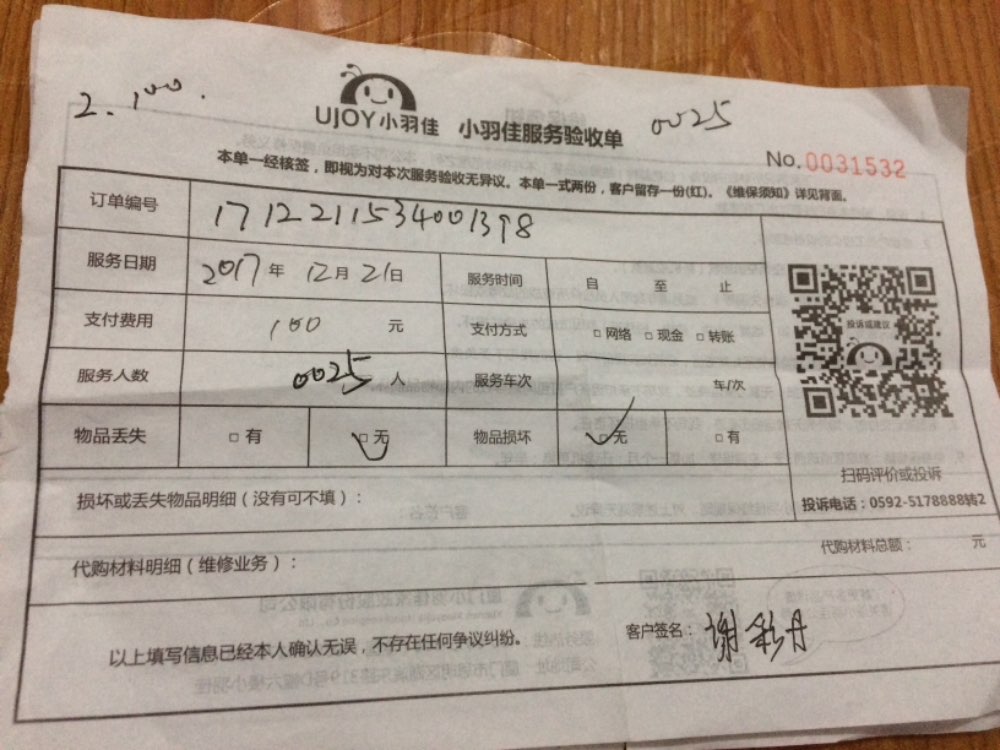 2. 100.
UJOY小羽佳 小羽佳服务验收单 0025
No. 0031532
本单一经核签，即视为对本次服务验收无异议。本单一式两份，客户留存一份(红)。《维保须知》详见背面。
订单编号 1712211534001398
服务日期 2017年 12月 21日 服务时间 自 至 止
支付费用 100 元 支付方式 □网络 □现金 □转账
投诉或建议
服务人数 0025 人 服务车次 年/次
物品丢失 □有 ☑无 物品损坏 ☑无 □有
扫码评价或投诉
损坏或丢失物品明细（没有可不填）：
投诉电话：0592-5178888转2
代购材料明细（维修业务）： 代购材料总额： 元
以上填写信息已经本人确认无误，不存在任何争议纠纷。 客户签名：谢彩丹